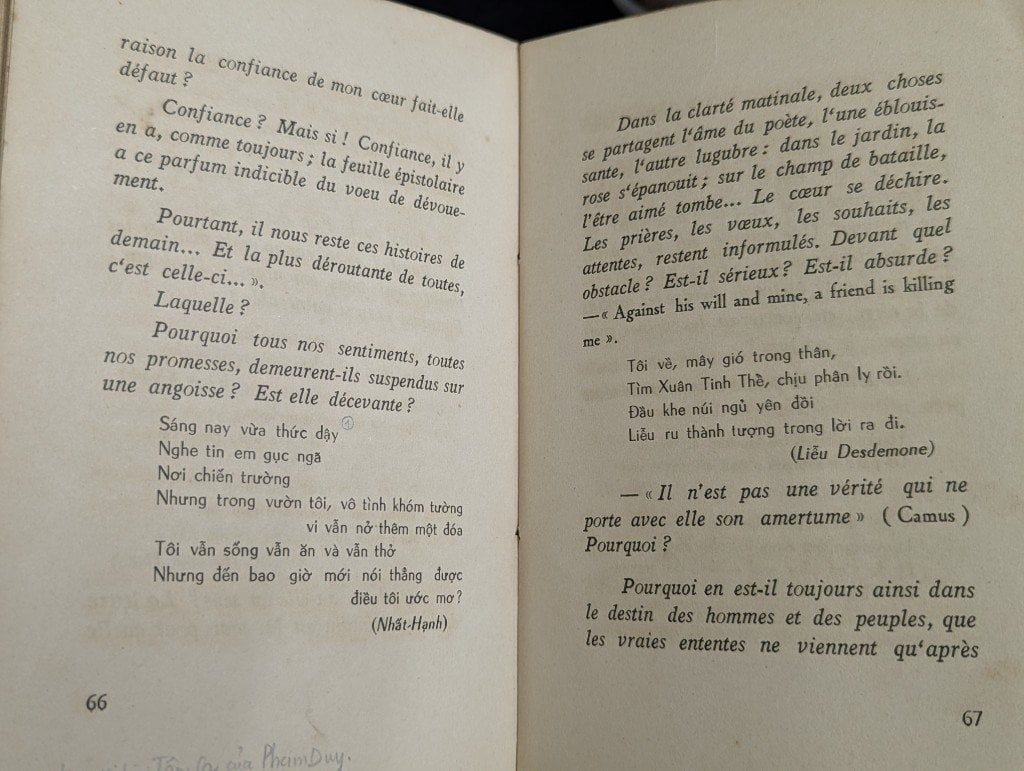 raison la confiance de mon cœur fait-elle
défaut ?
Confiance ? Mais si ! Confiance, il y
en a, comme toujours ; la feuille épistolaire
a ce parfum indicible du voeu de dévoue-
ment.
Pourtant, il nous reste ces histoires de
demain... Et la plus déroutante de toutes,
c‘est celle-ci... ».
Laquelle ?
Pourquoi tous nos sentiments, toutes
nos promesses, demeurent-ils suspendus sur
une angoisse ? Est elle décevante ?
Sáng nay vừa thức dậy ①
Nghe tin em gục ngã
Nơi chiến trường
Nhưng trong vườn tôi, vô tình khóm tường
vi vẫn nở thêm một đóa
Tôi vẫn sống vẫn ăn và vẫn thở
Nhưng đến bao giờ mới nói thẳng được
điều tôi ước mơ?
(Nhất-Hạnh)
66
Tâm ca của Phạm Duy.
Dans la clarté matinale, deux choses
se partagent l‘âme du poète, l‘une éblouis-
sante, l‘autre lugubre : dans le jardin, la
rose s‘épanouit ; sur le champ de bataille,
l‘être aimé tombe... Le cœur se déchire.
Les prières, les vœux, les souhaits, les
attentes, restent informulés. Devant quel
obstacle ? Est-il sérieux ? Est-il absurde ?
—« Against his will and mine, a friend is killing
me ».
Tôi về, mây gió trong thân,
Tìm Xuân Tinh Thề, chịu phân ly rồi.
Đầu khe núi ngủ yên đồi
Liễu ru thành tượng trong lời ra đi.
(Liễu Desdemone)
— « Il n’est pas une vérité qui ne
porte avec elle son amertume » ( Camus )
Pourquoi ?
Pourquoi en est-il toujours ainsi dans
le destin des hommes et des peuples, que
les vraies ententes ne viennent qu‘après
67